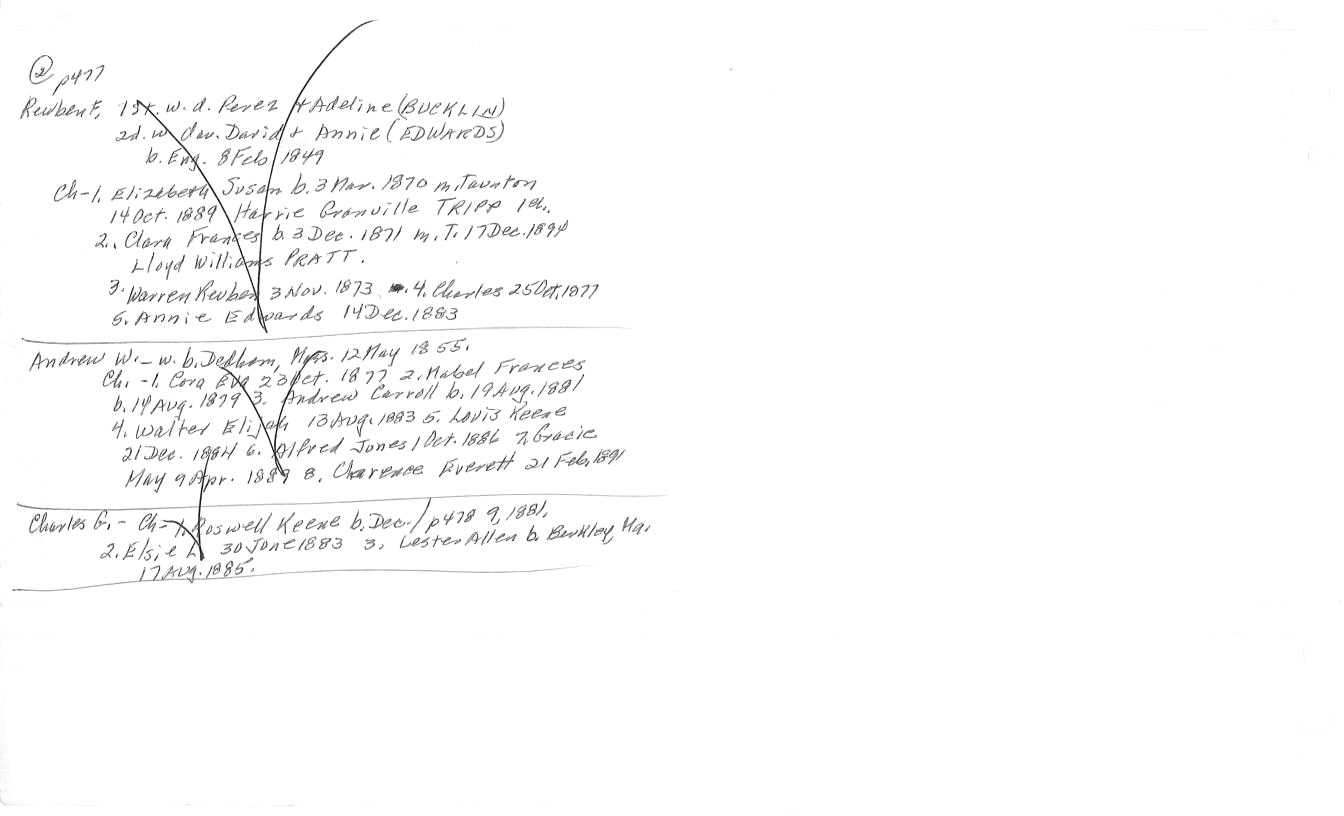 2
p477
Reuben F. 1st. w. d. Perez & Adeline (BUCKLIN)
2d. w dau. David & Annie (EDWARDS)
b. Eng. 8 Feb 1849
Ch-1. Elizabeth Susan b. 3 Mar. 1870 m. Taunton
14 Oct. 1889 Harrie Granville TRIPP 1ch.
2. Clara Frances b. 3 Dec. 1871 m. T. 17 Dec. 1894
Lloyd Williams PRATT.
3. Warren Reuben 3 Nov. 1873 4. Charles 25 Oct, 1877
5. Annie Edwards 14 Dec. 1883
Andrew W. - w. b. Dedham, Mass. 12 May 1855.
Ch. -1. Cora Eva 23 Oct. 1877 2. Mabel Frances
b. 14 Aug. 1879 3. Andrew Carroll b. 19 Aug. 1881
4. Walter Elijah 13 Aug. 1883 5. Louis Keene
21 Dec. 1884 6. Alfred Jones 1 Oct. 1886 7. Gracie
May 9 Apr. 1889 8. Clarence Everett 21 Feb, 1891
Charles G. - Ch-1. Roswell Keene b. Dec. / p478 9, 1881.
2. Elsie L. 30 June 1883 3. Lester Allen b. Berkley, Ma.
17 Aug. 1885.